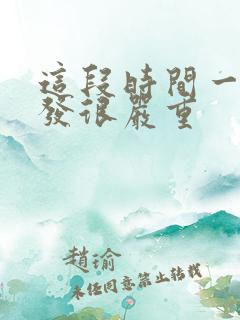 這段時間一
發很嚴重
趙瑜
未任同意禁止转载